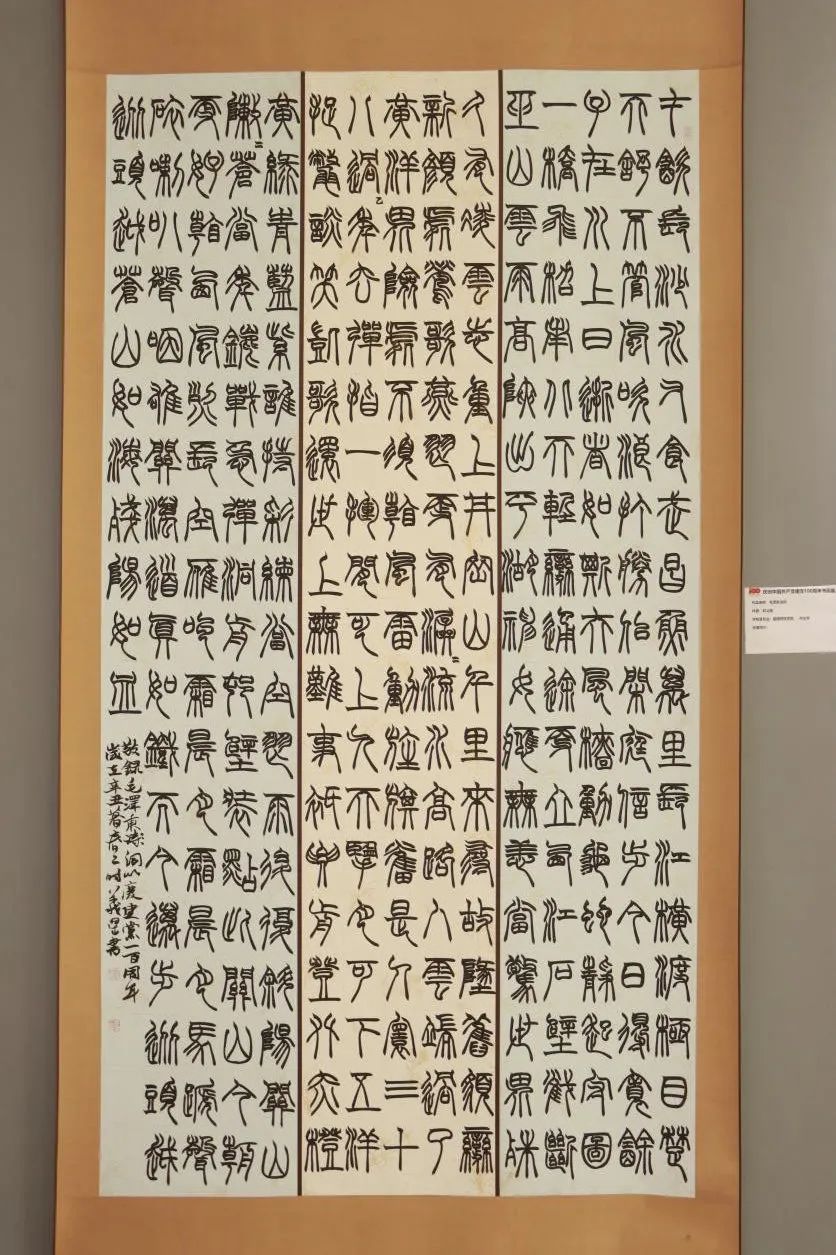 才飲長沙水又食武昌魚萬里長江橫渡極目楚
天舒不管風吹浪打勝似閒庭信步今日得寬餘
子在川上曰逝者如斯夫風檣動龜蛇靜起宏圖
一橋飛架南北天塹變通途更立西江石壁截斷
巫山雲雨高峽出平湖神女應無恙當驚世界殊
久有凌雲志重上井岡山千里來尋故地舊貌變
新顏處鶯歌燕舞更有潺=流水高路入雲端過了
黃洋界險處不須看風雷動旌旗奮是人寰三十
八過年去彈指一揮間可上九天攬月可下五洋
捉鱉談笑凱歌還世上無難事祇要肯登攀赤橙
黃綠青藍紫誰持彩練當空舞雨後復斜陽關山
陣=蒼當年鏖戰急彈洞前村壁裝點此關山今朝
更好看西風烈長空雁叫霜晨月霜晨月馬蹄聲
碎喇叭聲咽雄關漫道真如鐵而今邁步從頭越
從頭越蒼山如海殘陽如血
敬錄毛澤東詩詞以慶建黨一百周年
歲在辛丑暮春之時 書
庆祝中国共产党建党100周年书画展